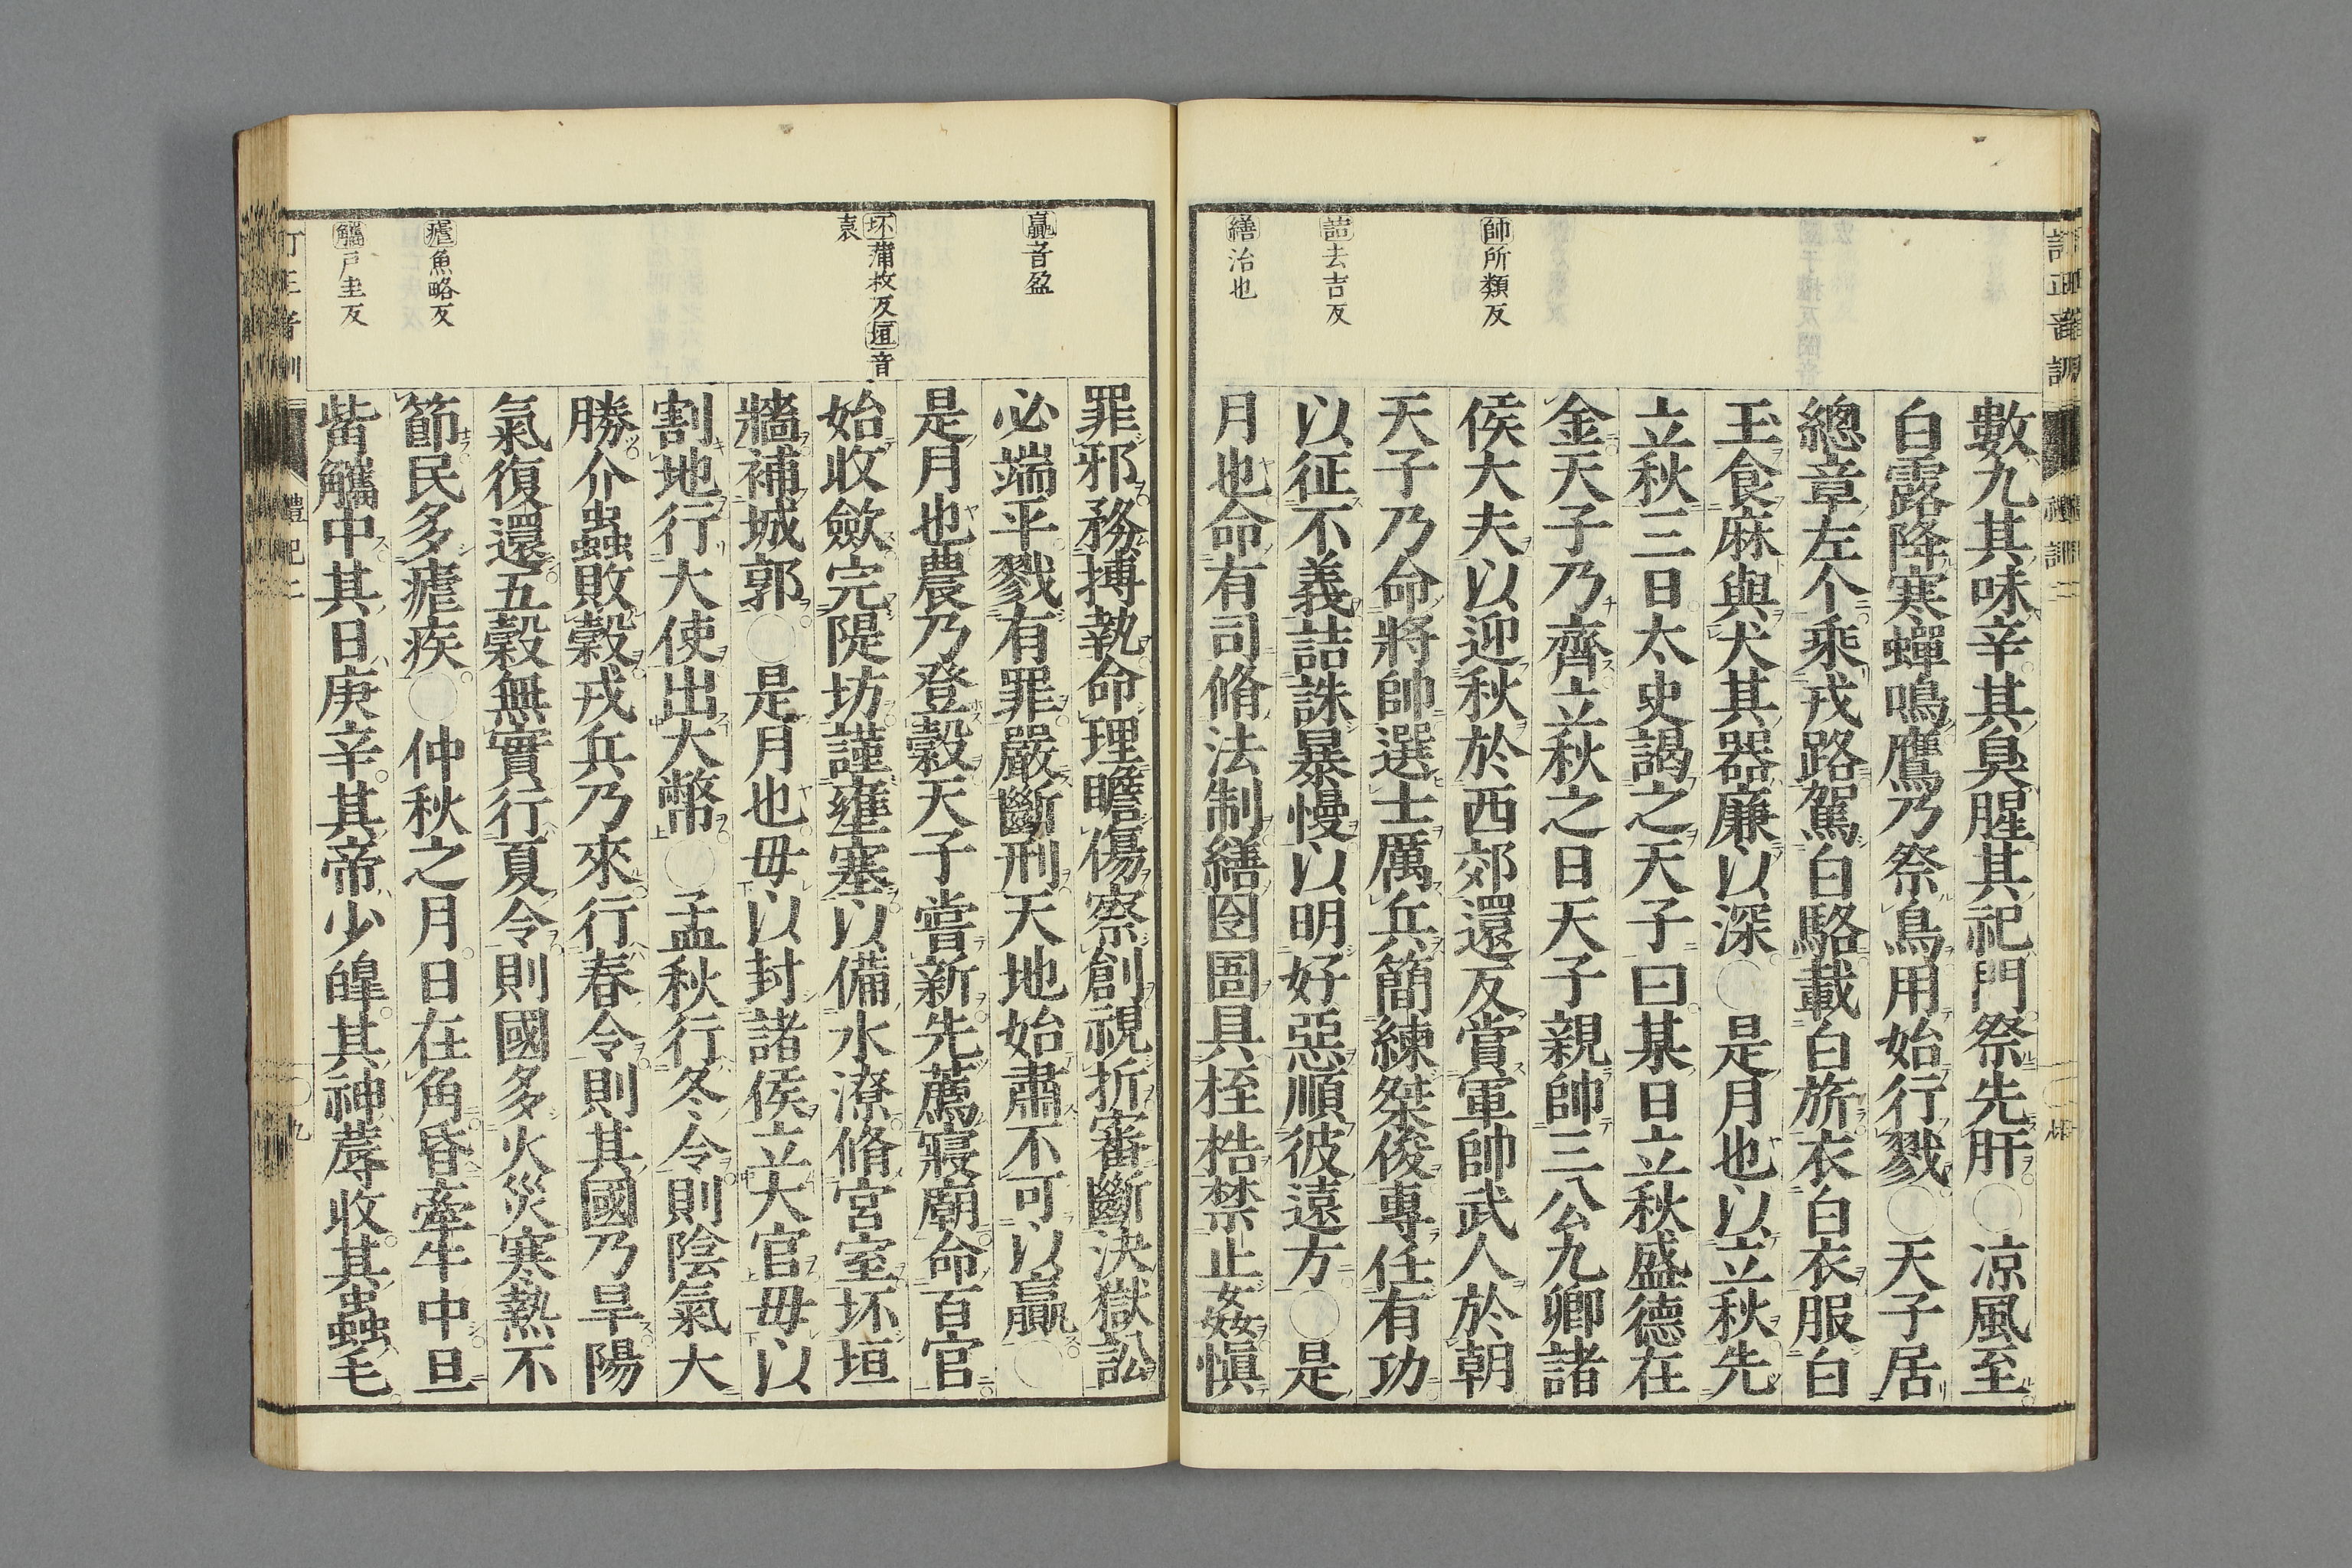 帥所類反
詰去吉反
繕治也
數九其味辛其臭腥其祀門祭先肝○凉風至
白露降寒蟬鳴鷹乃祭鳥用始行戮○天子居
總章左个乘戎路駕白駱載白旂衣白衣服白
玉食麻與犬其器廉以深○是月也以立秋先
立秋三日太史謁之天子曰某日立秋盛德在
金天子乃齊立秋之日天子親帥三公九卿諸
侯大夫以迎秋於西郊還反賞軍帥武人於朝
天子乃命將帥選士厲兵簡練桀俊專任有功
以征不義詰誅暴慢以明好惡順彼遠方○是
月也命有司脩法制繕囹圄具桎梏禁止姦愼
贏音盈
坏蒲枚反垣音
袁
瘧魚略反
觿戸圭反
罪邪務搏執命理瞻傷察創視折審斷決獄訟
必端平戮有罪嚴斷刑天地始肅不可以贏○
是月也農乃登穀天子嘗新先薦寢廟命百官
始收斂完隄坊謹壅塞以備水潦脩宮室坏垣
牆補城郭○是月也毋以封諸侯立大官毋以
割地行大使出大幣○孟秋行冬令則陰氣大
勝介蟲敗穀戎兵乃來行春令則其國乃旱陽
氣復還五穀無實行夏令則國多火災寒熱不
節民多瘧疾○仲秋之月日在角昏牽牛中旦
觜觿中其日庚辛其帝少皥其神蓐收其蟲毛
禮記二
九